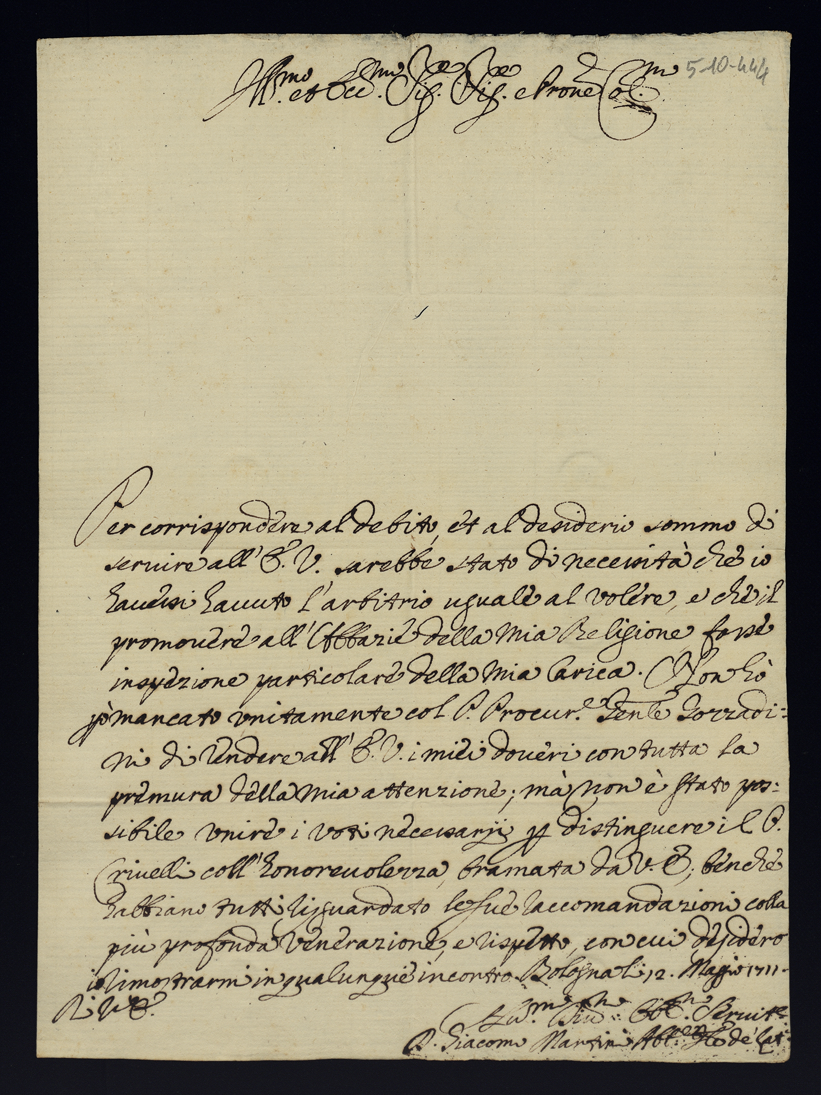 5-10-444
Ill.mo et Ecc.mo Sig. Sig. e Prone Col.mo
Per corrispondere al debito, et al desiderio sommo di
seruire all' E. V. sarebbe stato di necessità che io
hauessi hauuto l'arbitrio uguale al volere, e che il
promouere all' Abbazie della Mia Religione fosse
inspezione particolare della Mia Carica. Non hò
pò mancato vnitamente col P. Procur.e Genle Corradi:
ni di rendere all' E. V. i miei doueri con tutta la
premura della Mia attenzione; mà non è stato pos:
sibile vnire i voti necessarij p distinguere il P.
Criuelli coll' honoreuolezza, bramata da V. E; benche
habbiano tutti risguardato le sue raccomandazioni colla
più profonda venerazione, e rispetto, con cui desidero
rimostrarmi in qualunque incontro Bologna li 12. Maggio 1711.
Di V. E.
Hu.mo Diu.mo Obb.mo Seruit.e
D. Giacomo Martini Ab.e